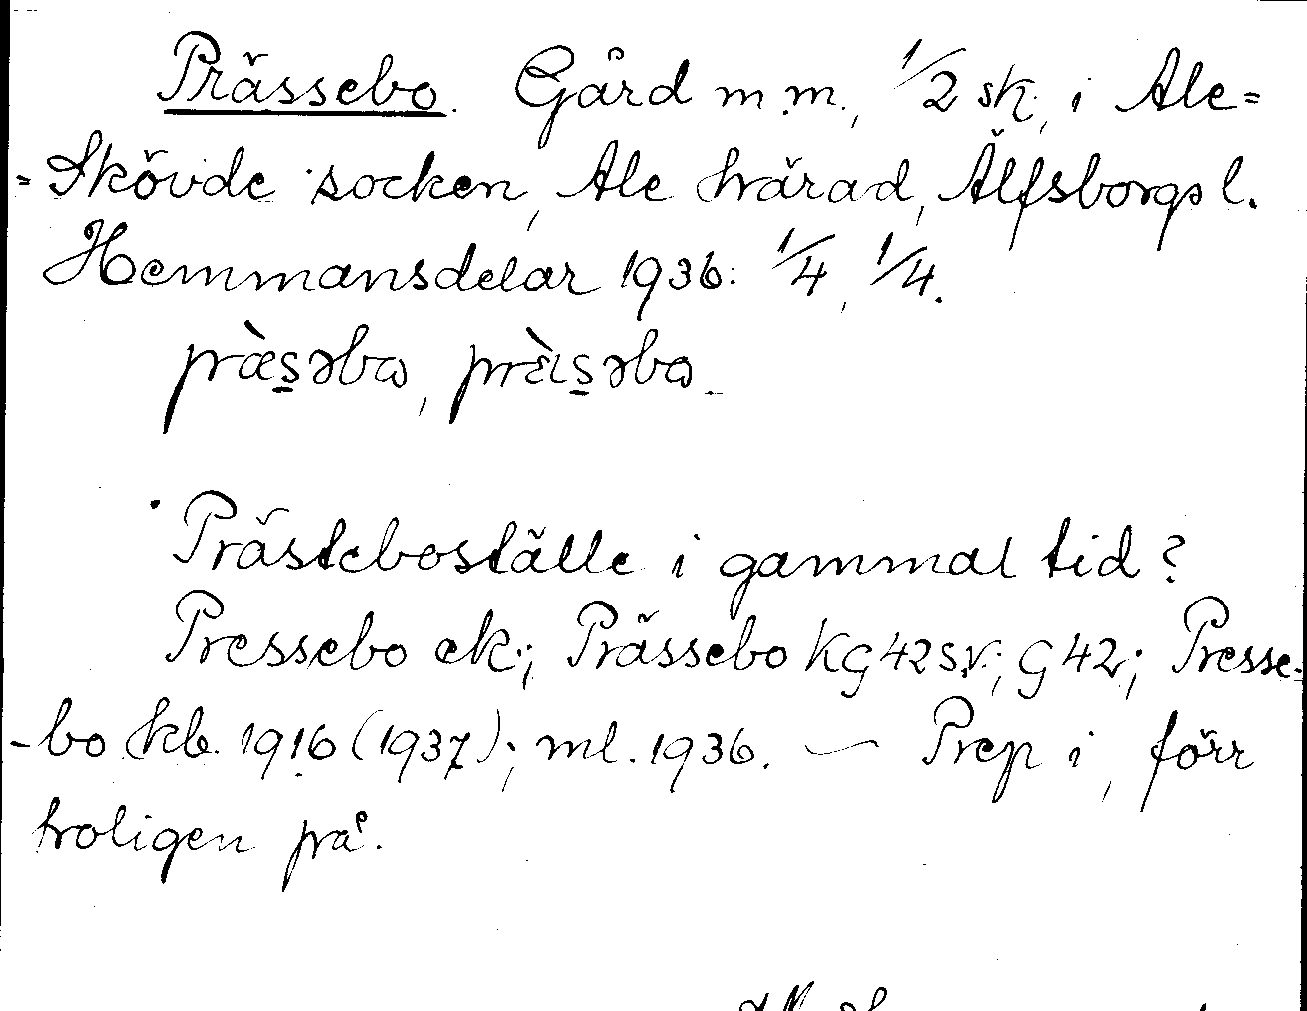 Prässebo. Gård m.m., 1/2 sk., i Ale=
=Skövde socken, Ale härad, Älfsborgs l.
Hemmansdelar 1936: 1/4, 1/4.
præ̀s̲əbɷ, prɛ̀ıs̲əbɷ.
Prästeboställe i gammal tid?
Pressebo ek.; Prässebo KG42SV.; G42; Presse-
-bo kb. 1916 (1937); ml. 1936. — Prep i, förr
troligen på.